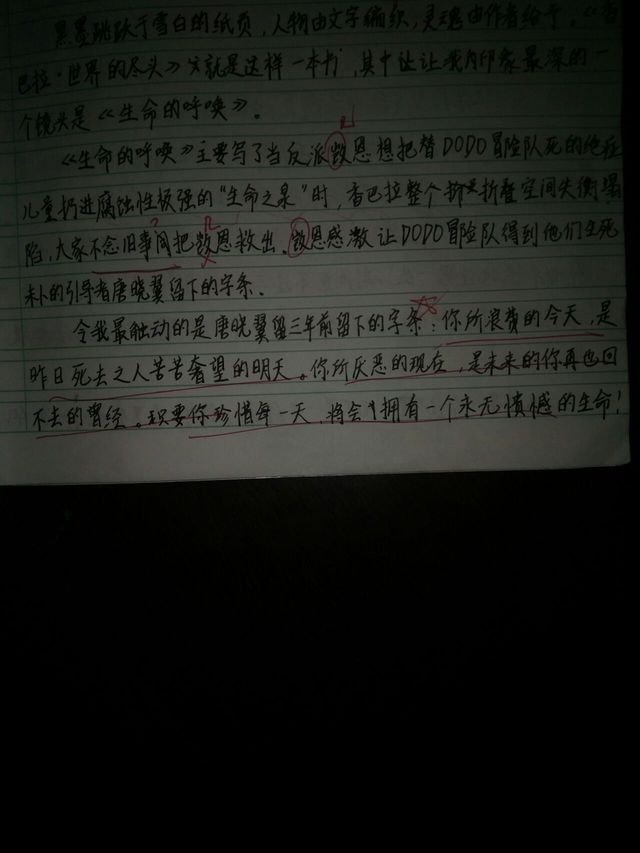 黑墨跳跃于雪白的纸页，人物由文字编织，灵魂由作者给予。《香
巴拉·世界的尽头》就是这样一本书，其中让让我印象最深的一
个镜头是《生命的呼唤》。
《生命的呼唤》主要写了当反派敳恩想把替DODO冒险队死的绝症
儿童扔进腐蚀性极强的“生命之泉”时，香巴拉整个折叠空间失衡塌
陷，大家不念旧事间把敳恩救出。敳恩感激让DODO冒险队得到他们生死
未卜的引导者唐晓翼留下的字条。
令我最触动的是唐晓翼留三年前留下的字条：你所浪费的今天，是
昨日死去之人苦苦奢望的明天。你所厌恶的现在，是未来的你再也回
不去的曾经。只要你珍惜每一天，将会拥有一个永无愤憾的生命！